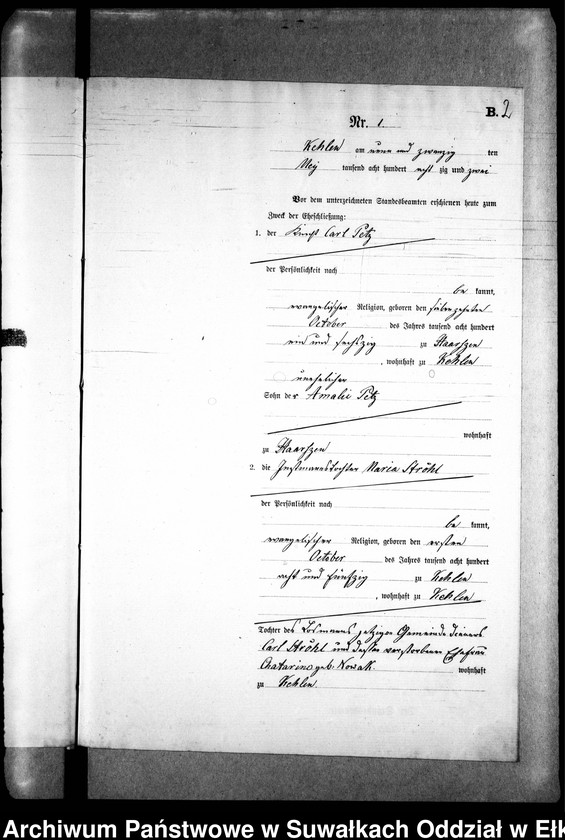 B. 2
Nr. 1.
Kehlen am neun und zwanzig ten
Mej tausend acht hundert acht zig und zwei
Vor dem unterzeichneten Standesbeamten erschienen heute zum
Zweck der Eheschließung:
1. der Knecht Carl Petz
der Persönlichkeit nach
be kannt,
evangelischer Religion, geboren den siebenzehnten
October des Jahres tausend acht hundert
ein und sechszig zu Staarszen
, wohnhaft zu Kehlen
unehelicher
Sohn der Amalie Petz
wohnhaft
zu Staarszen
2. die Instmannstochter Maria Ströhl
der Persönlichkeit nach
be kannt,
evangelischer Religion, geboren den ersten
October des Jahres tausend acht hundert
acht und fünfzig zu Kehlen
, wohnhaft zu Kehlen
Tochter des Losmanns jetzigen Gemeinde dieners
Carl Ströhl und dessen verstorbenen Ehefrau
Chatarine geb. Nowak. wohnhaft
zu Kehlen.
Archiwum Państwowe w Suwałkach Oddział w Ełk